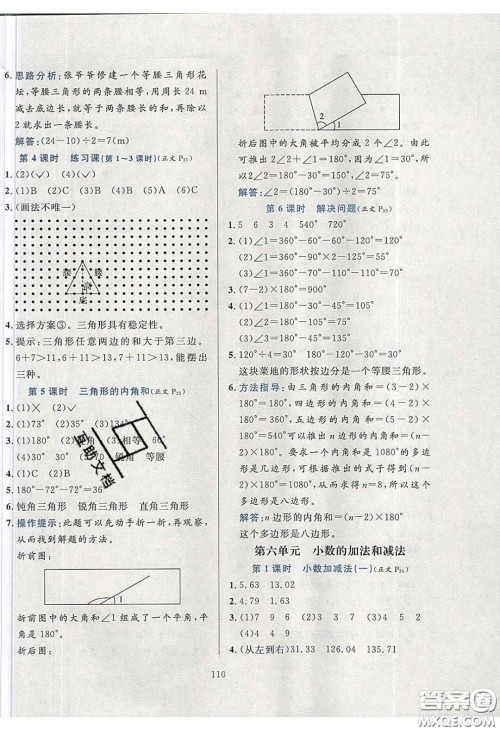 6. 思路分析：张爷爷修建一个等腰三角形花
坛，等腰三角形的两条腰相等，用周长24 m
减去底边长，就等于两条腰长的和，再除以
2就求出一条腰长。
解答：(24－10)÷2＝7(m)
第4课时 练习课(第1~3课时)
1. (2)(√) (3)(√)
2. (1)B (2)A (3)C (4)B (5)A (6)C
3. (画法不唯一)
腰 腰
高
底
4. 选择方案③。三角形具有稳定性。
5. 提示：三角形任意两边的和大于第三边。
6＋7＞11，6＋11＞13，7＋11＞13，能摆出
三种。
第5课时 三角形的内角和
1. (1)× (2)√
2. (1)73° (2)35° (3)134°
3. (1)180° (2)180° (3)相等 60°
(4)30° 30° 锐角 等腰
4. (1)C (2)B
5. 180°－72°－72°＝36°
6. 钝角三角形 锐角三角形 直角三角形
7. 操作提示：可以先动手折一折，再观察，
从而找到解题的方法。
折前图：
1
折前图中的大角和∠1组成了一个平角，是
180°。
折后图：
2 1
折后图中的大角被平均分成2个∠2，
因此2个∠2＋∠1＝180°。
解答：2∠2＋∠1＝180°，∠1＝70°，
则2∠2＝180°－70°＝110°，
∠2＝110°÷2＝55°
第6课时 解决问题
1. 5 6 3 4 540° 720°
2. (1)∠1＝360°－60°－120°－110°＝70°
(2)∠1＝360°－90°－90°－50°＝130°
3. (7－2)×180°＝900°
4. (1)∠1＝180°－45°－30°＝105°
(2)∠1＝180°－45°＝135°
5. 120°÷4＝30° 180°－120°－30°＝30°
这块菜地的形状按边分是一个等腰三角形。
6. 方法指导：由三角形的内角和＝(3－2)×
180°，四边形的内角和＝(4－2)×180°＝
360°，五边形的内角和＝(5－2)×180°＝
540°……可以得出n边形的内角和＝(n－2)×
180°。根据内角和是1080°，可以求出这个多
边形是几边形，即(n－2)×180°＝1080°，
n－2＝1080°÷180°，n－2＝6，n＝8，这个
多边形是八边形。
解答：n边形的内角和＝(n－2)×180°
这个多边形是八边形。
第六单元 小数的加法和减法
第1课时 小数加减法(一)
1. 5.63 13.02
2. 4.79 1.63
3. (1)7 9 6 (2)7 9 (3)1 3 7
(4)4 4 9
4. (从左到右)31.33 126.04 135.71
110
互助文档
答案圈
MXQE.COM